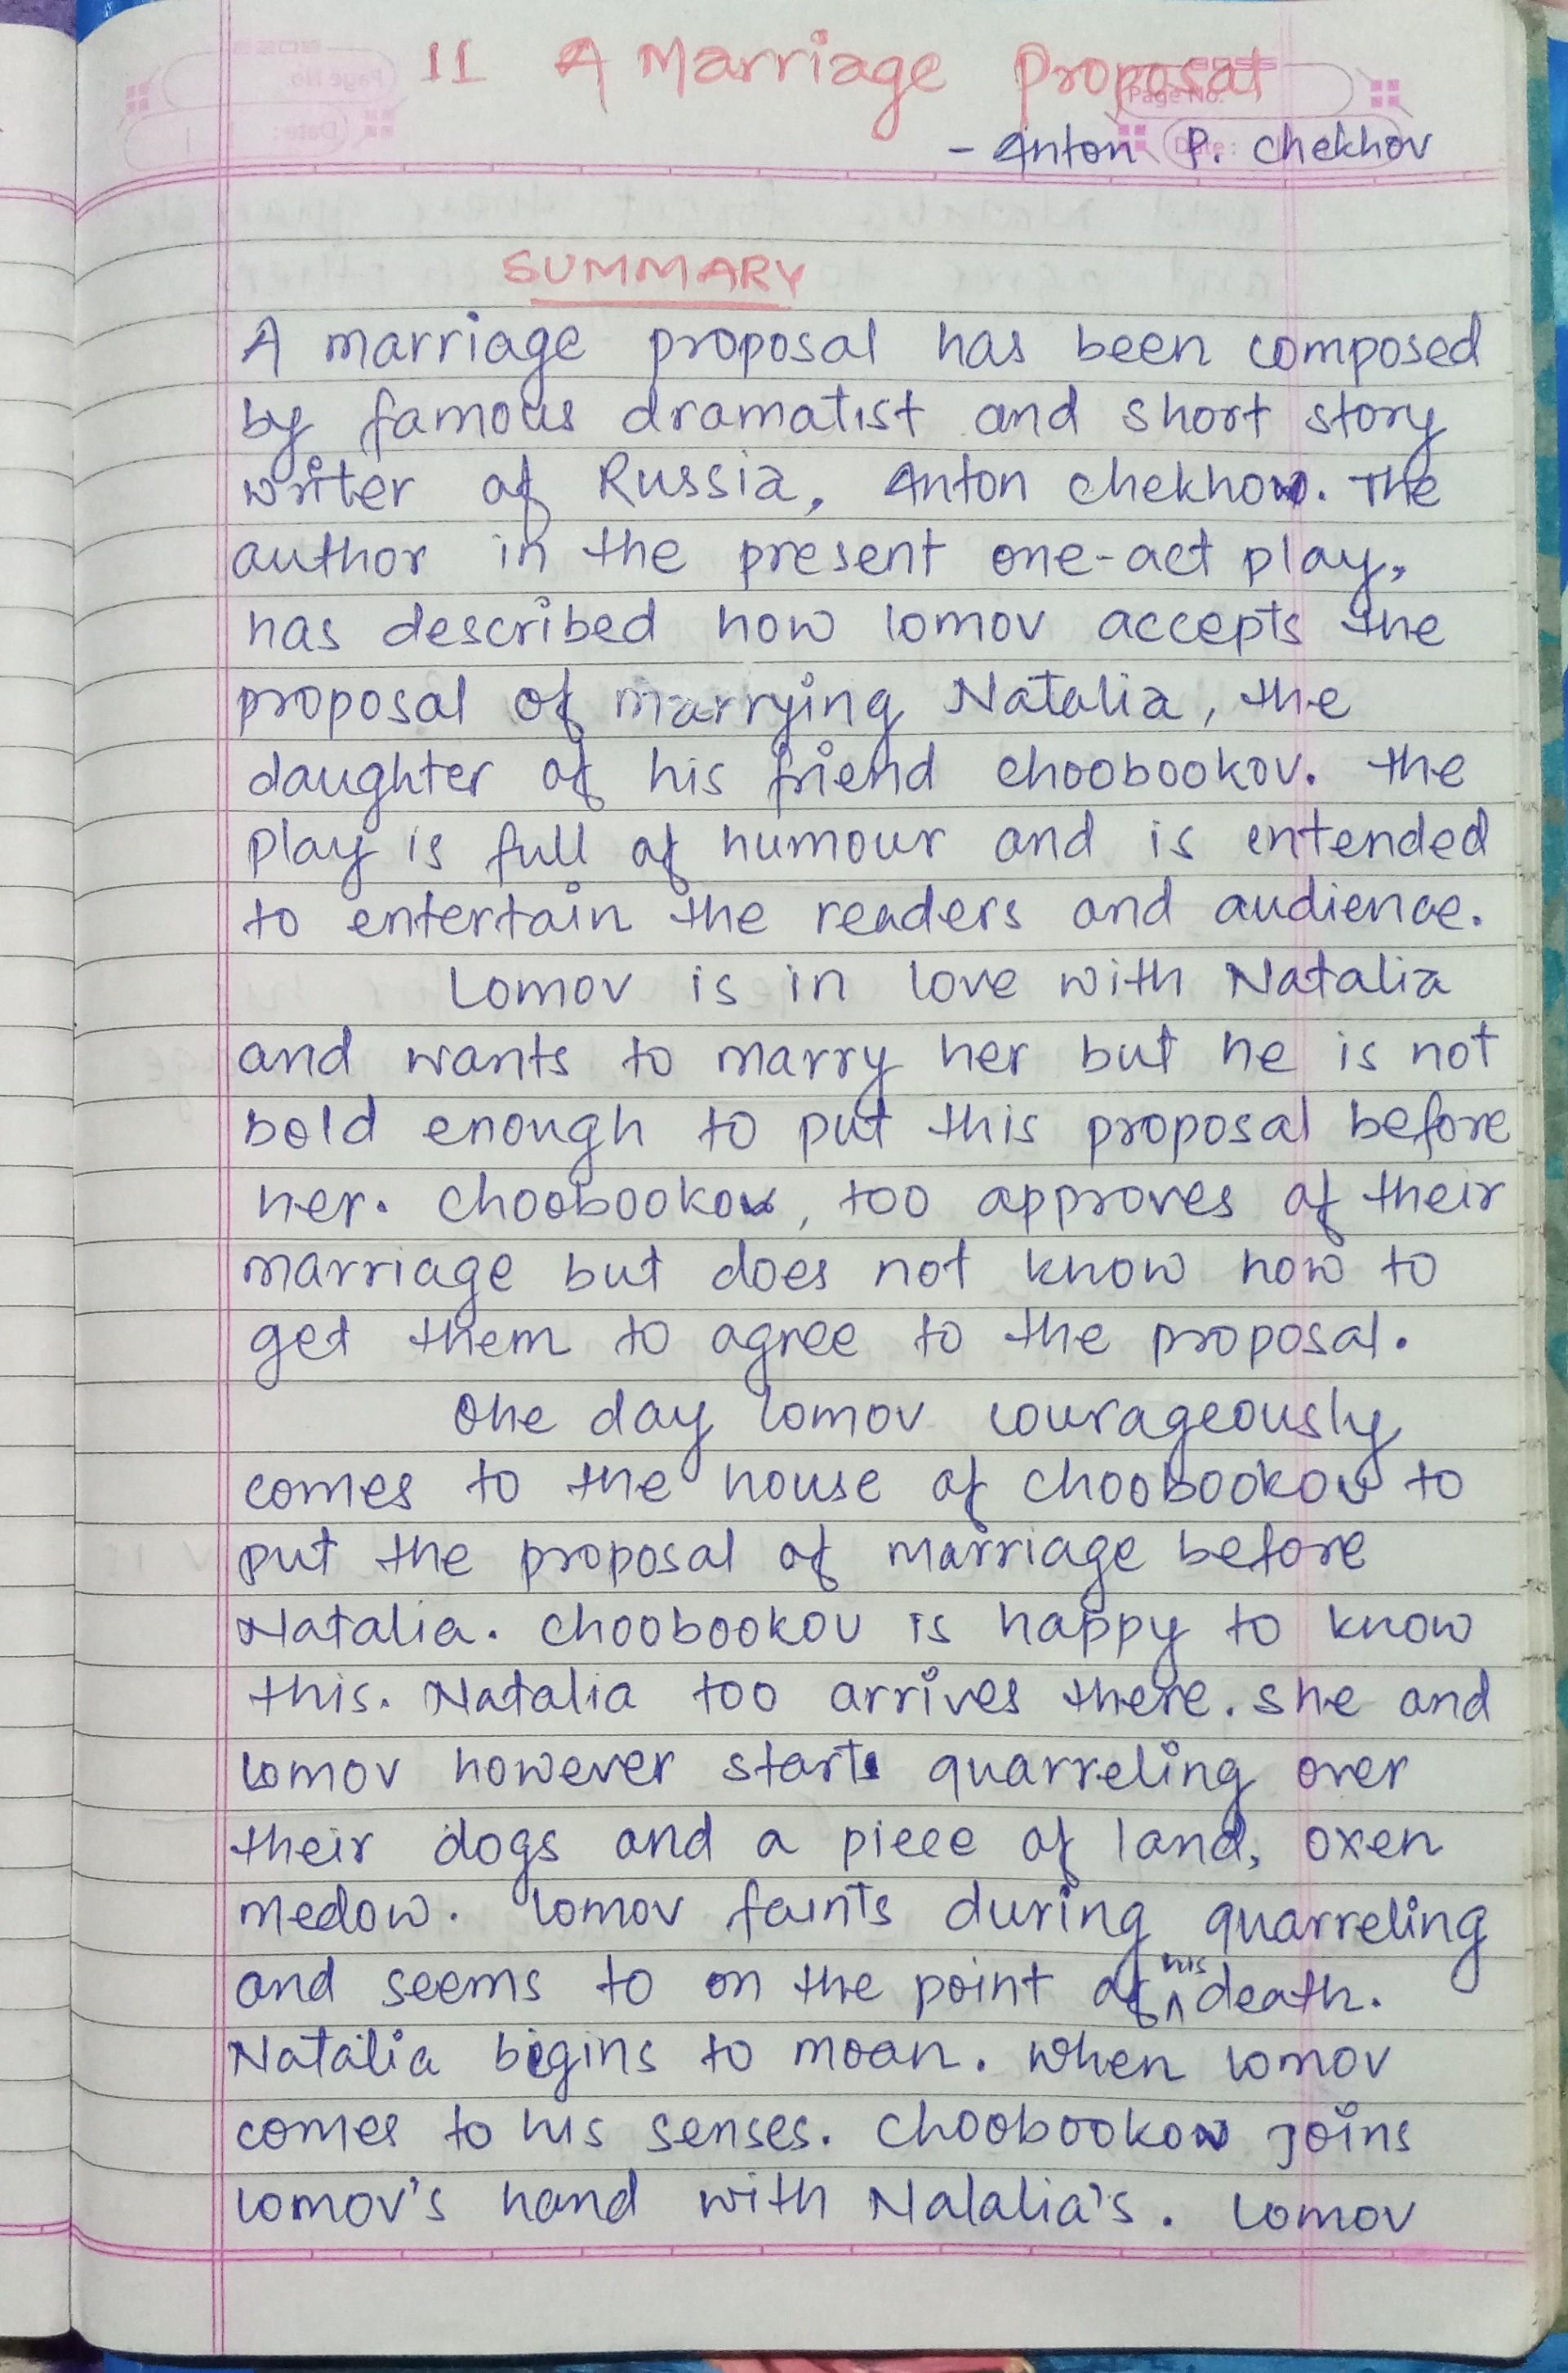 11 A Marriage Proposal
Page No.
Date:
- Anton P. Chekhov
SUMMARY
A marriage proposal has been composed
by famous dramatist and short story
writer of Russia, Anton Chekhow. The
author in the present one-act play,
has described how lomov accepts the
proposal of marrying Natalia, the
daughter of his friend choobookov. the
play is full of humour and is entended
to entertain the readers and audience.
Lomov is in love with Natalia
and wants to marry her but he is not
bold enough to put this proposal before
her. Choobookov, too approves of their
marriage but does not know how to
get them to agree to the proposal.
One day lomov courageously
comes to the house of choobookov to
put the proposal of marriage before
Natalia. choobookov is happy to know
this. Natalia too arrives there. she and
lomov however starts quarreling over
their dogs and a piece of land, oxen
medow. lomov faints during quarreling
and seems to on the point of his death.
Natalia begins to moan. When lomov
comes to his senses. Choobookow joins
lomov's hand with Nalalia's. Lomov